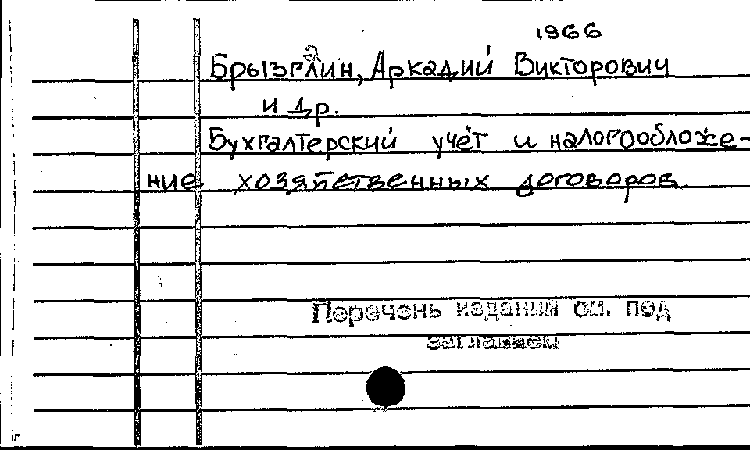 1966
Брызгалин, Аркадий Викторович
и др.
Бухгалтерский учёт и налогообложе-
ние хозяйственных договоров
Перечень изданий см. под
заглавием